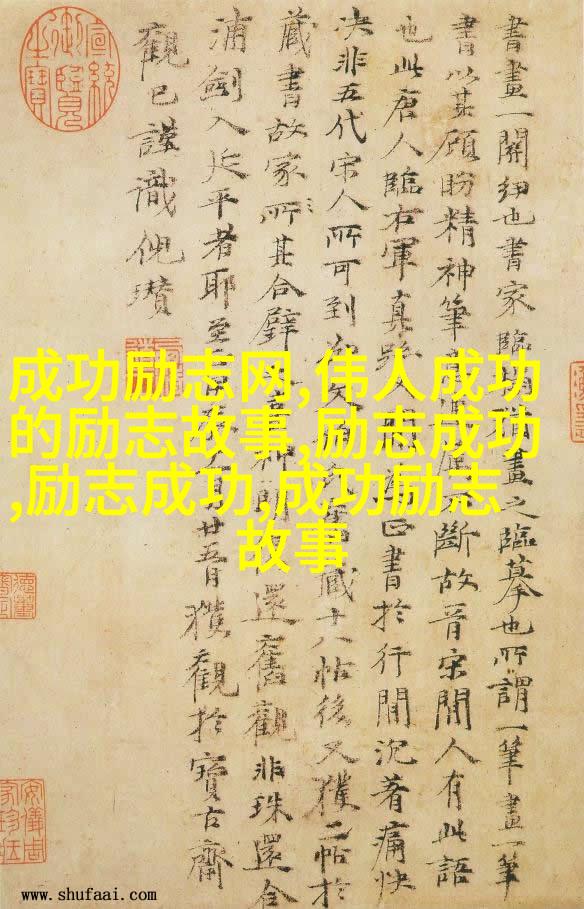 書畫一關紐也書家臨畫之臨摹也所謂一筆畫一筆
書以其顧盼精神筆不斷故晉宋間人有此語
也此唐人臨右軍真跡入書於行間沉著痛快
決非五代宋人所可到藏十八帖後又獲二帖於
藏書故家所其合璧神還舊觀非珠還合
浦劍入延平者耶至月廿五日獲觀於寶古齋
觀已謹識倪瓚
宣統御覽之寶
成功励志网,伟人成功
的励志故事,励志成功
,励志成功,成功励志
故事
安儀周家珍藏
www.shufaai.com